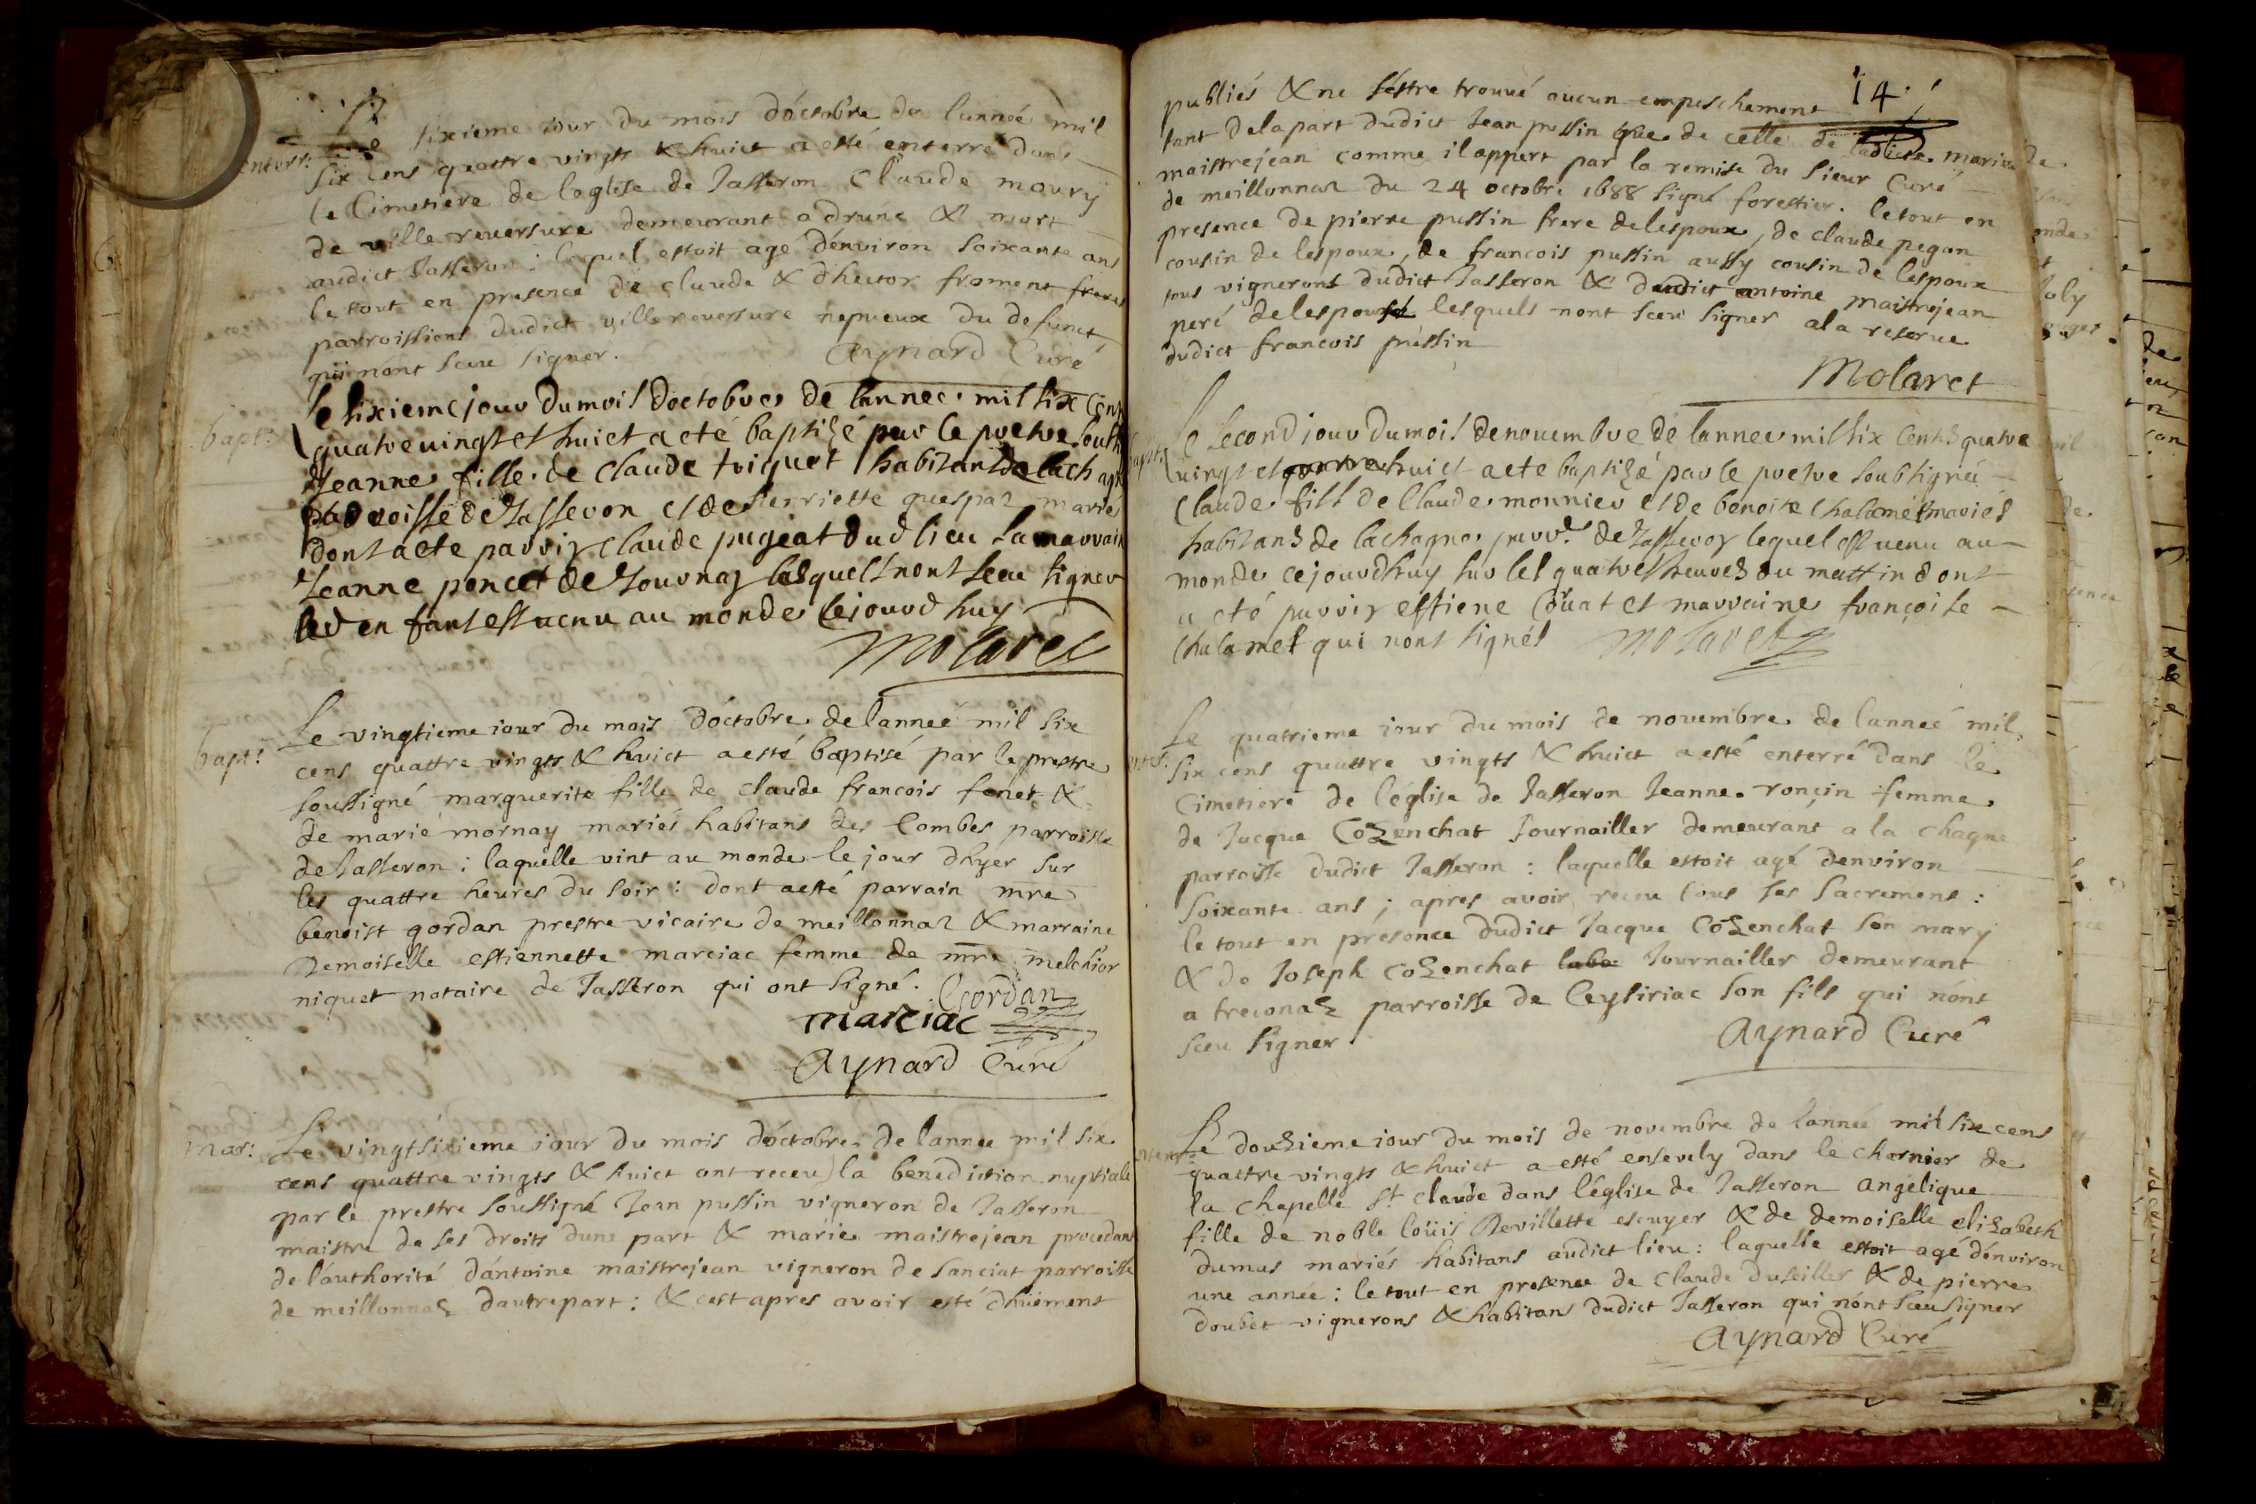 enterr:
sixieme iour du mois d'óctobre de lanneé mil
six cens quattre vingts & huict a esté enterré dans
le Cimetiere de leglise de Jasseron Claude maury
de ville reuersure demeurant a drunc & mort
audict Jasseron : lequel estoit agé d'énviron soixante ans
le tout en presence de claude & dhector froment freres
parroissiens dudict villereuersure nepueux du defunct
qui nónt sceu signer. Aynard Curé
bapt:
le sixieme jour du mois doctobre de lannee mil six Cent
quatre vingt et huict a eté baptizé par le pretre soubs
Jeanne fille de Claude triquet habitant de lachagne
parroisse de Jasseron et de henriette guespaz mariés
dont a ete parrin Claude pugeat dud lieu la marrain
Jeanne poncet de Journaz lesquels nont sceu signer
led enfant est uenu au monde cejourdhuy
Molaret
bapt:
Le vingtieme iour du mois d'óctobre de lanneé mil six
cens quattre vingts & huict a esté baptisé par le prestre
soussigné marguerite fille de claude francois fenet &
de marie mornay mariés habitans des Combes parroisse
de Jasseron : laquelle vint au monde le jour dhyer sur
les quattre heures du soir : dont a esté parrain mre
benoist gordan prestre vicaire de meillonnaz & marraine
Demoiselle estiennette marciac femme de mre melchior
niquet notaire de Jasseron qui ont signé. Gordan
marciac
Aynard Curé
Mar:
Le vingtsixieme iour du mois d'óctobre de lannee mil six
cens quattre vingts & huict ont receu la benediction nuptiale
par le prestre soussigné Jean pussin vigneron de Jasseron
maistre de ses droits dune part & marie maistrejean procedant
de l'áuthorité d'ántoine maistrejean vigneron de sanciat parroisse
de meillonnaz dautrepart : & cest apres avoir esté dhüement
14
publiés & ne séstre trouué aucun empeschement
tant de la part dudict Jean pussin que de celle de ladicte marie
maistrejean comme il appert par la remise du sieur Curé
de meillonnaz du 24 octobre 1688 signé forestier. le tout en
presence de pierre pussin frere de lespoux, de claude pegon
cousin de lespoux, de francois pussin aussy cousin de lespoux
tous vignerons dudict Jasseron & dudict antoine maistrejean
peré de lespouse lesquels nont sceu signer a la reserue
dudict francois pussin
Molaret
bapts
le second jour du mois de nouembre de lannee mil six Cents quatre
vingt et huict a ete baptizé par le pretre soubsigné
Claude fils de Claude monnier et de benoite Chalamel mariés
habitans de lachagne parr. de Jasseron lequel est uenu au
monde cejourdhuy sur les quatre heures du mattin dont
a eté parrin estiene Couat et marraine françoise
Chalamel qui nont signés Molaret
Le quatrieme iour du mois de novembre de lanneé mil
six cens quattre vingts & huict a esté enterré dans le
Cimetiere de léglise de Jasseron Jeanne ronçin femme
de Jacque Cozenchat Journailler demeurant a la chagne
parroisse dudict Jasseron : laquelle estoit agé denviron
soixante ans ; apres avoir receu tous ses sacremens :
le tout en presence dudict Jacque Cozenchat son mary
& de Joseph cozenchat labo: Journailler demeurant
a treconaz parroisse de Ceysiriac son fils qui nónt
sceu signer. Aynard Curé
Le douzieme iour du mois de novembre de lannée mil six cens
quattre vingts & huict a esté ensevely dans le charnier de
la chapelle st claude dans léglise de Jasseron angelique
fille de noble loüis Devillette escuyer & de demoiselle elizabeth
dumas mariés habitans audict lieu : laquelle estoit agé dénviron
une année : le tout en presence de claude duseiller & de pierre
doubet vignerons & habitans dudict Jasseron qui nónt sceu signer
Aynard Curé